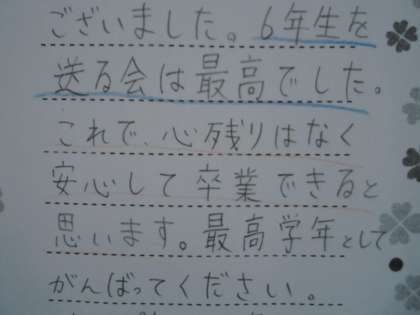 ございました。6年生を
送る会は最高でした。
これで、心残りはなく
安心して卒業できると
思います。最高学年として
がんばってください。